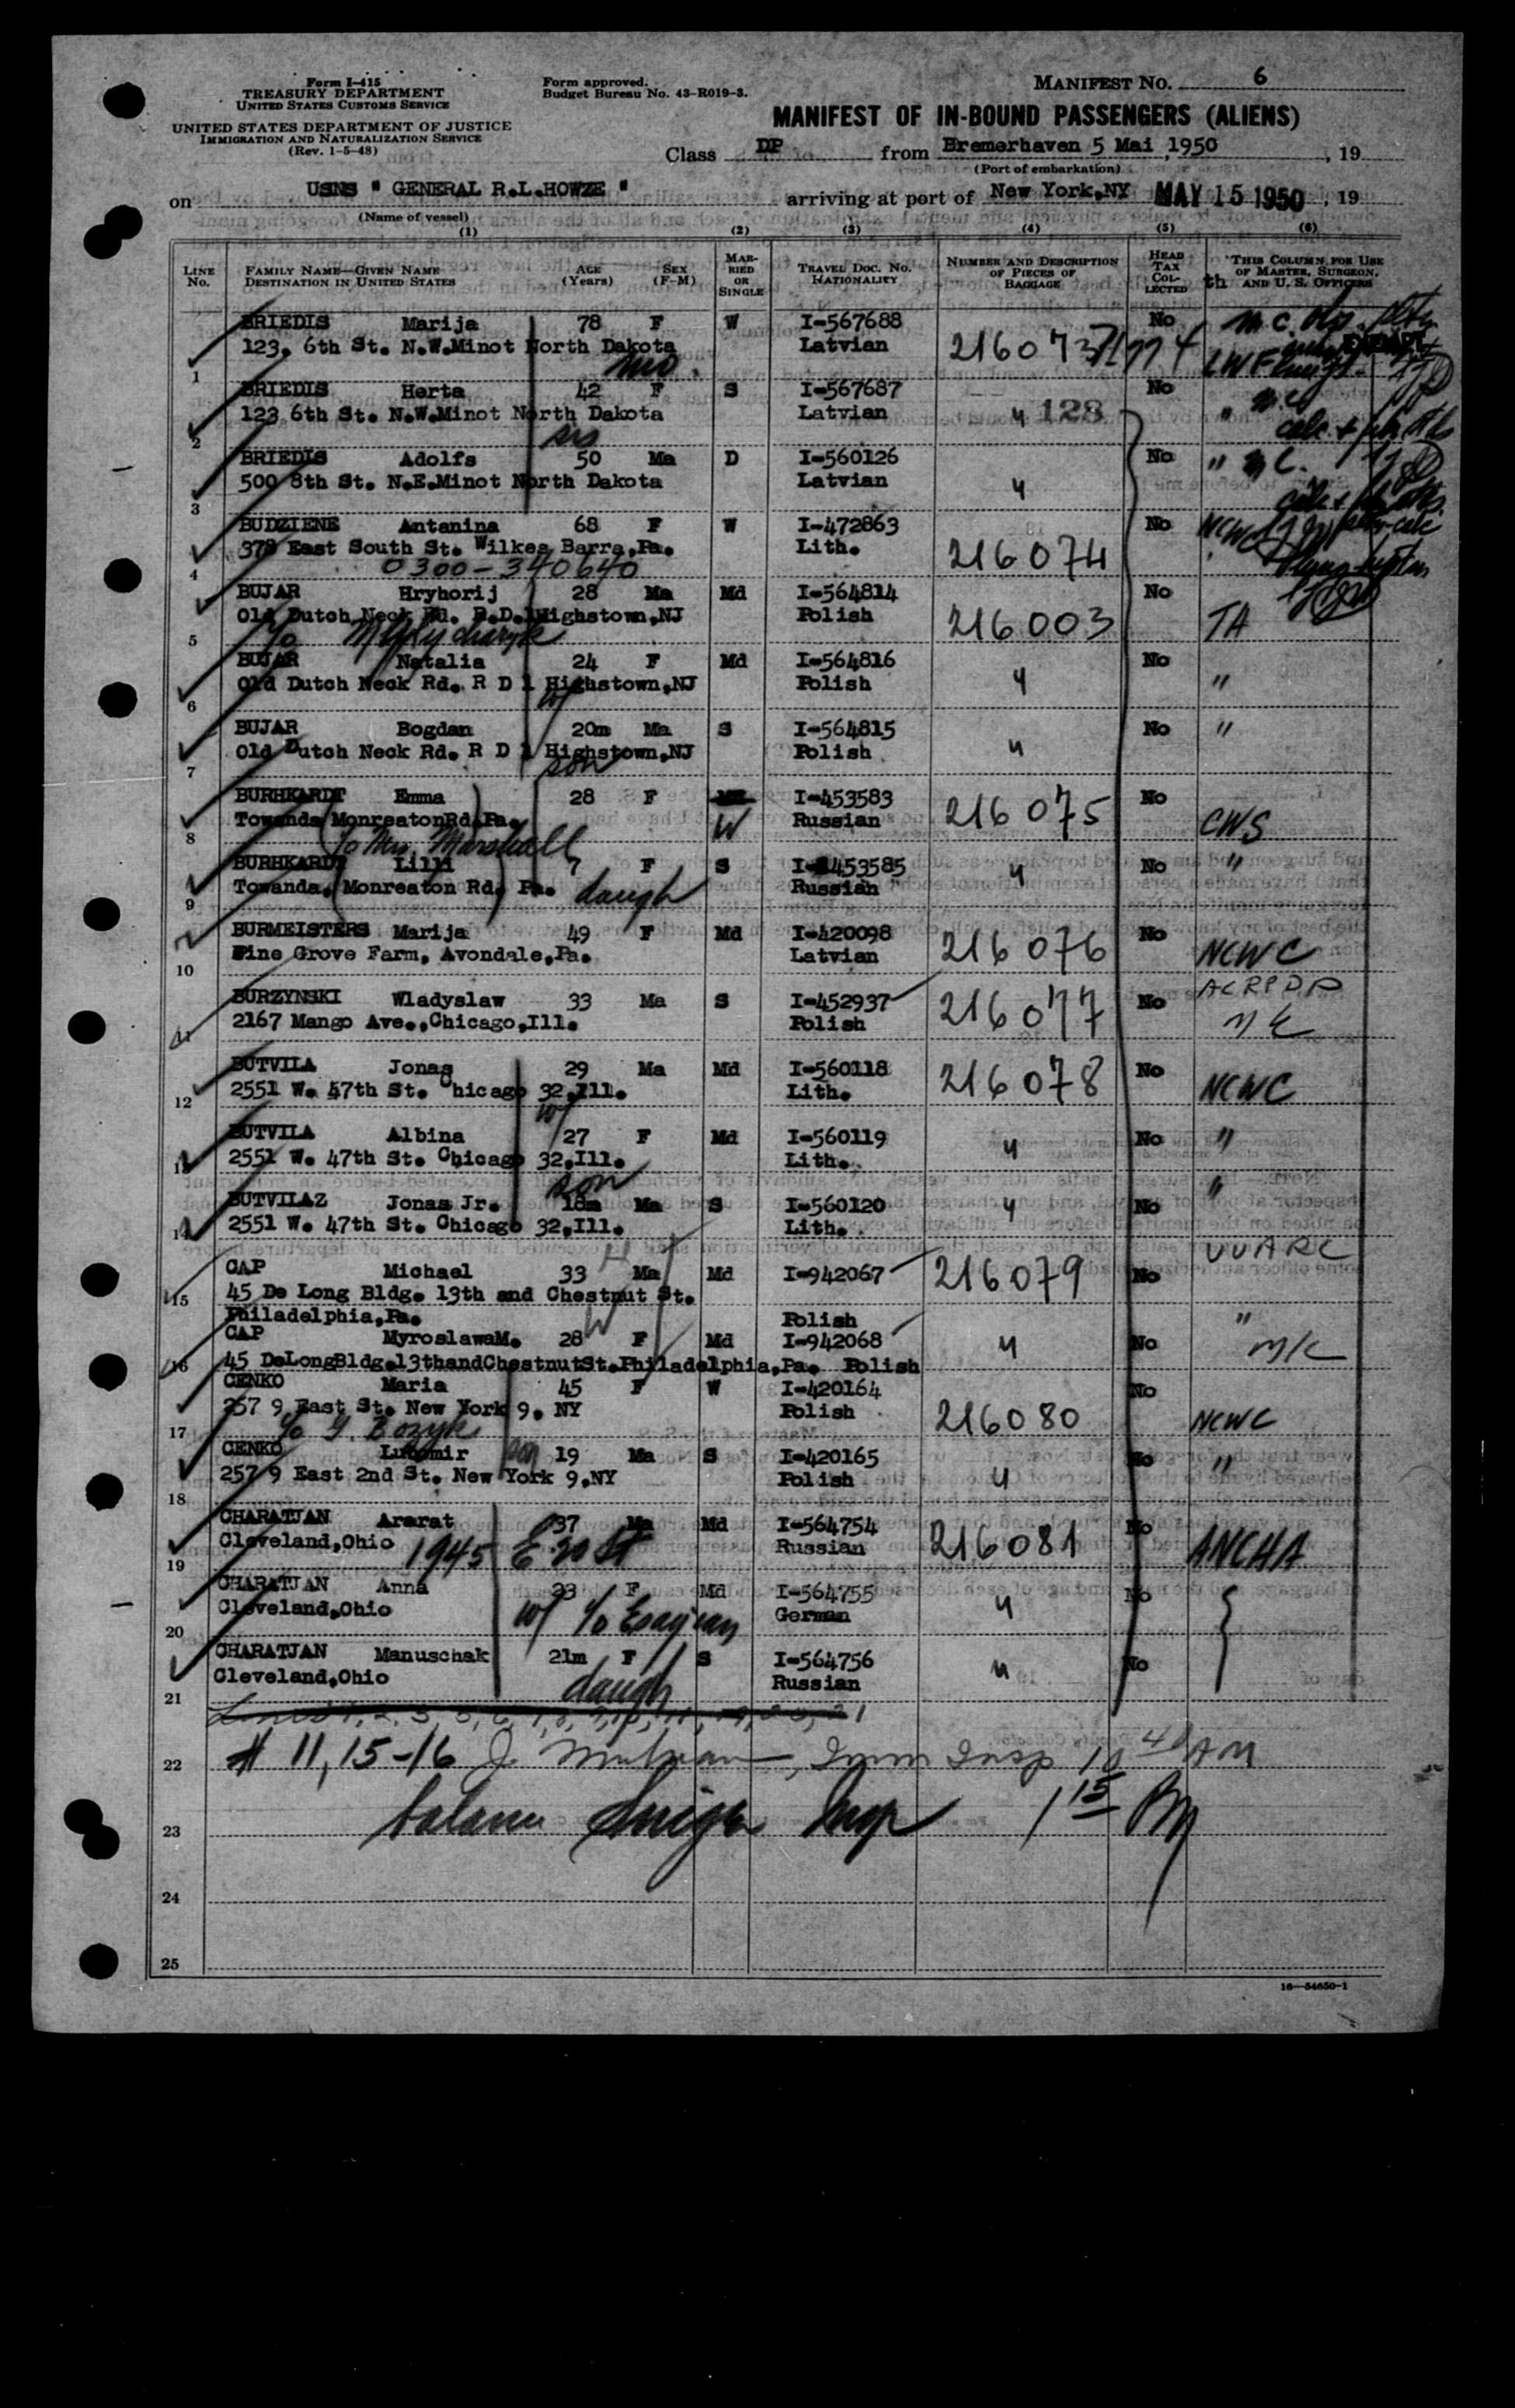 Form I-415
TREASURY DEPARTMENT
UNITED STATES CUSTOMS SERVICE
UNITED STATES DEPARTMENT OF JUSTICE
IMMIGRATION AND NATURALIZATION SERVICE
(Rev. 1-5-48)
Form approved.
Budget Bureau No. 43-R019-3.
MANIFEST No. 6
MANIFEST OF IN-BOUND PASSENGERS (ALIENS)
Class DP from Bremerhaven 5 Mai, 1950, 19
(Port of embarkation)
on USNS " GENERAL R.L.HOWZE " arriving at port of New York,NY MAY 15 1950, 19
(Name of vessel)
(1) (2) (3) (4) (5) (6)
LINE No. FAMILY NAME—GIVEN NAME DESTINATION IN UNITED STATES AGE (Years) SEX (F-M) MARRIED OR SINGLE TRAVEL DOC. NO. NATIONALITY NUMBER AND DESCRIPTION OF PIECES OF BAGGAGE HEAD TAX COLLECTED THIS COLUMN FOR USE OF MASTER, SURGEON, AND U. S. OFFICERS
BRIEDIS Marija 78 F W I-567688 No
123. 6th St. N.W.Minot North Dakota Latvian 216073 LWF
1 mo.
BRIEDIS Herta 42 F S I-567687 No
123 6th St. N.W.Minot North Dakota Latvian " 128 "
2 sis
BRIEDIS Adolfs 50 Ma D I-560126 No "
500 8th St. N.E.Minot North Dakota Latvian "
3
BUDZIENE Antanina 68 F W I-472863 No NCWC
378 East South St. Wilkes Barra,Pa. Lith. 216074
4 0300-340640
BUJAR Hryhorij 28 Ma Md I-564814 No
Old Dutch Neck Rd. R.D.1Highstown,NJ Polish 216003 TA
5 c/o
BUJAR Natalia 24 F Md I-564816 No
Old Dutch Neck Rd. R D 1 Highstown,NJ Polish " "
6 wf
BUJAR Bogdan 20m Ma S I-564815 No "
Old Dutch Neck Rd. R D 1 Highstown,NJ Polish "
7 son
BURHKARDT Emma 28 F W I-453583 No
Towanda MonreatonRd.Pa. Russian 216075 CWS
8 c/o Mrs. Marshall
BURHKARDT Lilli 7 F S I-453585 No "
Towanda, Monreaton Rd, Pa. Russian "
9 daugh
BURMEISTERS Marija 49 F Md I-420098 No
Pine Grove Farm, Avondale,Pa. Latvian 216076 NCWC
10
BURZYNSKI Wladyslaw 33 Ma S I-452937 No ACRPDP
2167 Mango Ave.,Chicago,Ill. Polish 216077
11
BUTVILA Jonas 29 Ma Md I-560118 No
2551 W. 47th St. Chicago 32,Ill. Lith. 216078 NCWC
12 wf
BUTVILA Albina 27 F Md I-560119 No "
2551 W. 47th St. Chicago 32,Ill. Lith. "
13 son
BUTVILAZ Jonas Jr. 18m Ma S I-560120 No "
2551 W. 47th St. Chicago 32,Ill. Lith. "
14
CAP Michael 33 H Ma Md I-942067 No UUARC
45 De Long Bldg. 13th and Chestnut St. 216079
15
Philadelphia,Pa. Polish
CAP MyroslawaM. 28 W F Md I-942068 No "
45 DeLongBldg.13thandChestnutSt.Philadelphia,Pa. Polish "
16
CENKO Maria 45 F W I-420164 No
257 9 East St. New York 9. NY Polish 216080 NCWC
17 c/o J. Bozyk
CENKO Lubomir son 19 Ma S I-420165 No "
257 9 East 2nd St. New York 9,NY Polish "
18
CHARATJAN Ararat 37 Ma Md I-564754 No
Cleveland,Ohio 1945 E 30 St Russian 216081 ANCHA
19
CHARATJAN Anna 23 F Md I-564755 No
Cleveland,Ohio German "
20 wf c/o Esajian
CHARATJAN Manuschak 21m F S I-564756 No
Cleveland,Ohio Russian "
21 daugh
22 # 11, 15-16 J. Insp 10 40 AM
23 balance Insp 1 15 PM
24
25
16—54650-1